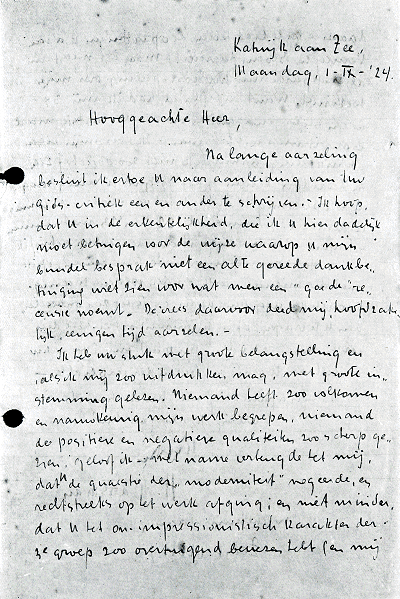 Katwijk aan Zee,
Maandag, 1-IX-'24.
Hooggeachte Heer,
Na lange aarzeling
besluit ik ertoe U naar aanleiding van Uw
Gids-critiek een en ander te schrijven. - Ik hoop,
dat U in de erkentelijkheid, die ik U hier dadelijk
moet betuigen voor de wijze waarop U mijn
bundel besprak niet een al te gereede dankbe-
tuiging wilt zien voor wat men een "goede" re-
censie noemt. De vrees daarvoor deed mij, hoofdzake-
lijk, eenigen tijd aarzelen. -
Ik heb Uw stuk met groote belangstelling en
als ik mij zoo uitdrukken mag, met groote in-
stemming gelezen. Niemand heeft zoo volkomen
en nauwkeurig mijn werk begrepen, niemand
de positieve en negatieve qualiteiten zoo scherp ge-
zien, geloof ik. - Met name verheugde het mij,
dat U de quaestie der "moderniteit" negeerde, en
rechtstreeks op het werk afging; en niet minder,
dat U het on-impressionistisch karakter de-
zer groep zoo overtuigend bewezen hebt (en mij